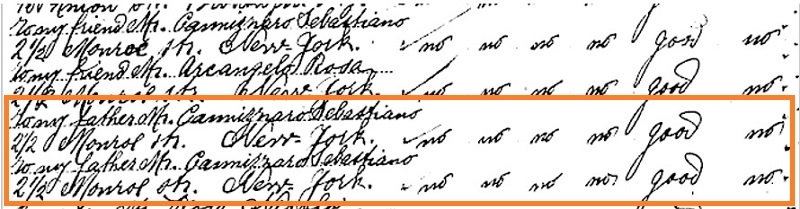 to my friend Mr. Cannizzaro Sebastiano
212 Monroe str. New-York. no no no no good no
to my friend Mr. Arcangelo Rosa
212 Monroe str. New York. no no no no good no
to my father Mr. Cannizzaro Sebastiano
212 Monroe str. New-York. no no no no good no
to my father Mr. Cannizzaro Sebastiano
212 Monroe str. New-York. no no no no good no